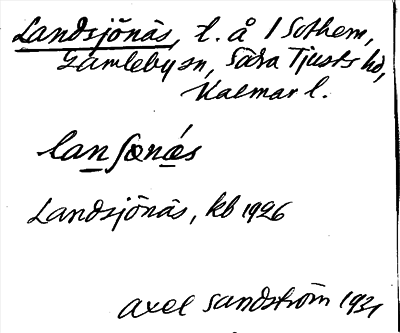 Landsjönäs, t. å 1 Sothem,
Gamleby sn, Södra Tjusts hd,
Kalmar l.
lanʃœnæ̀s
Landsjönäs, kb 1926
Axel Sandström 1931